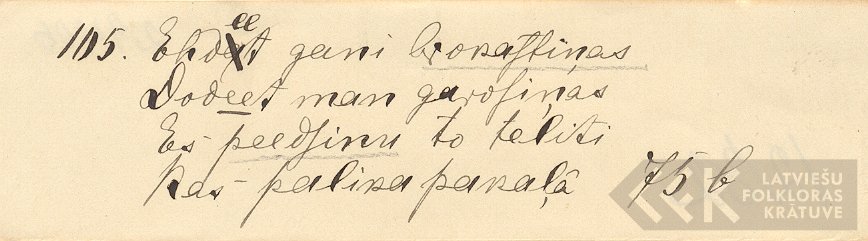 105. Ehdeet gani brokastiņas
Dodeet man garosiņas
Es peedsinu to teliti
Kas palika pakaļâ 75 b
LATVIEŠU
FOLKLORAS
KRĀTUVE